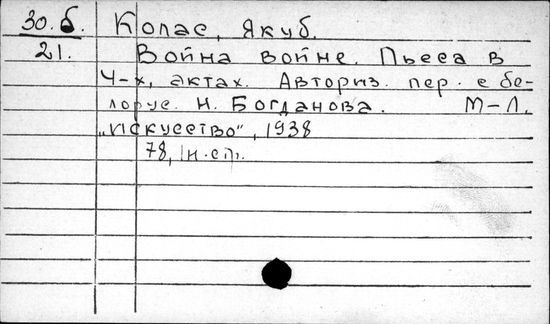 30.б. Колас, Якуб.
21. Война войне. Пьеса в
4-х, актах. Авториз. пер. с бе-
лорус. Н. Богданова. М-Л.
„Искусство", 1938
78, 1н.с.